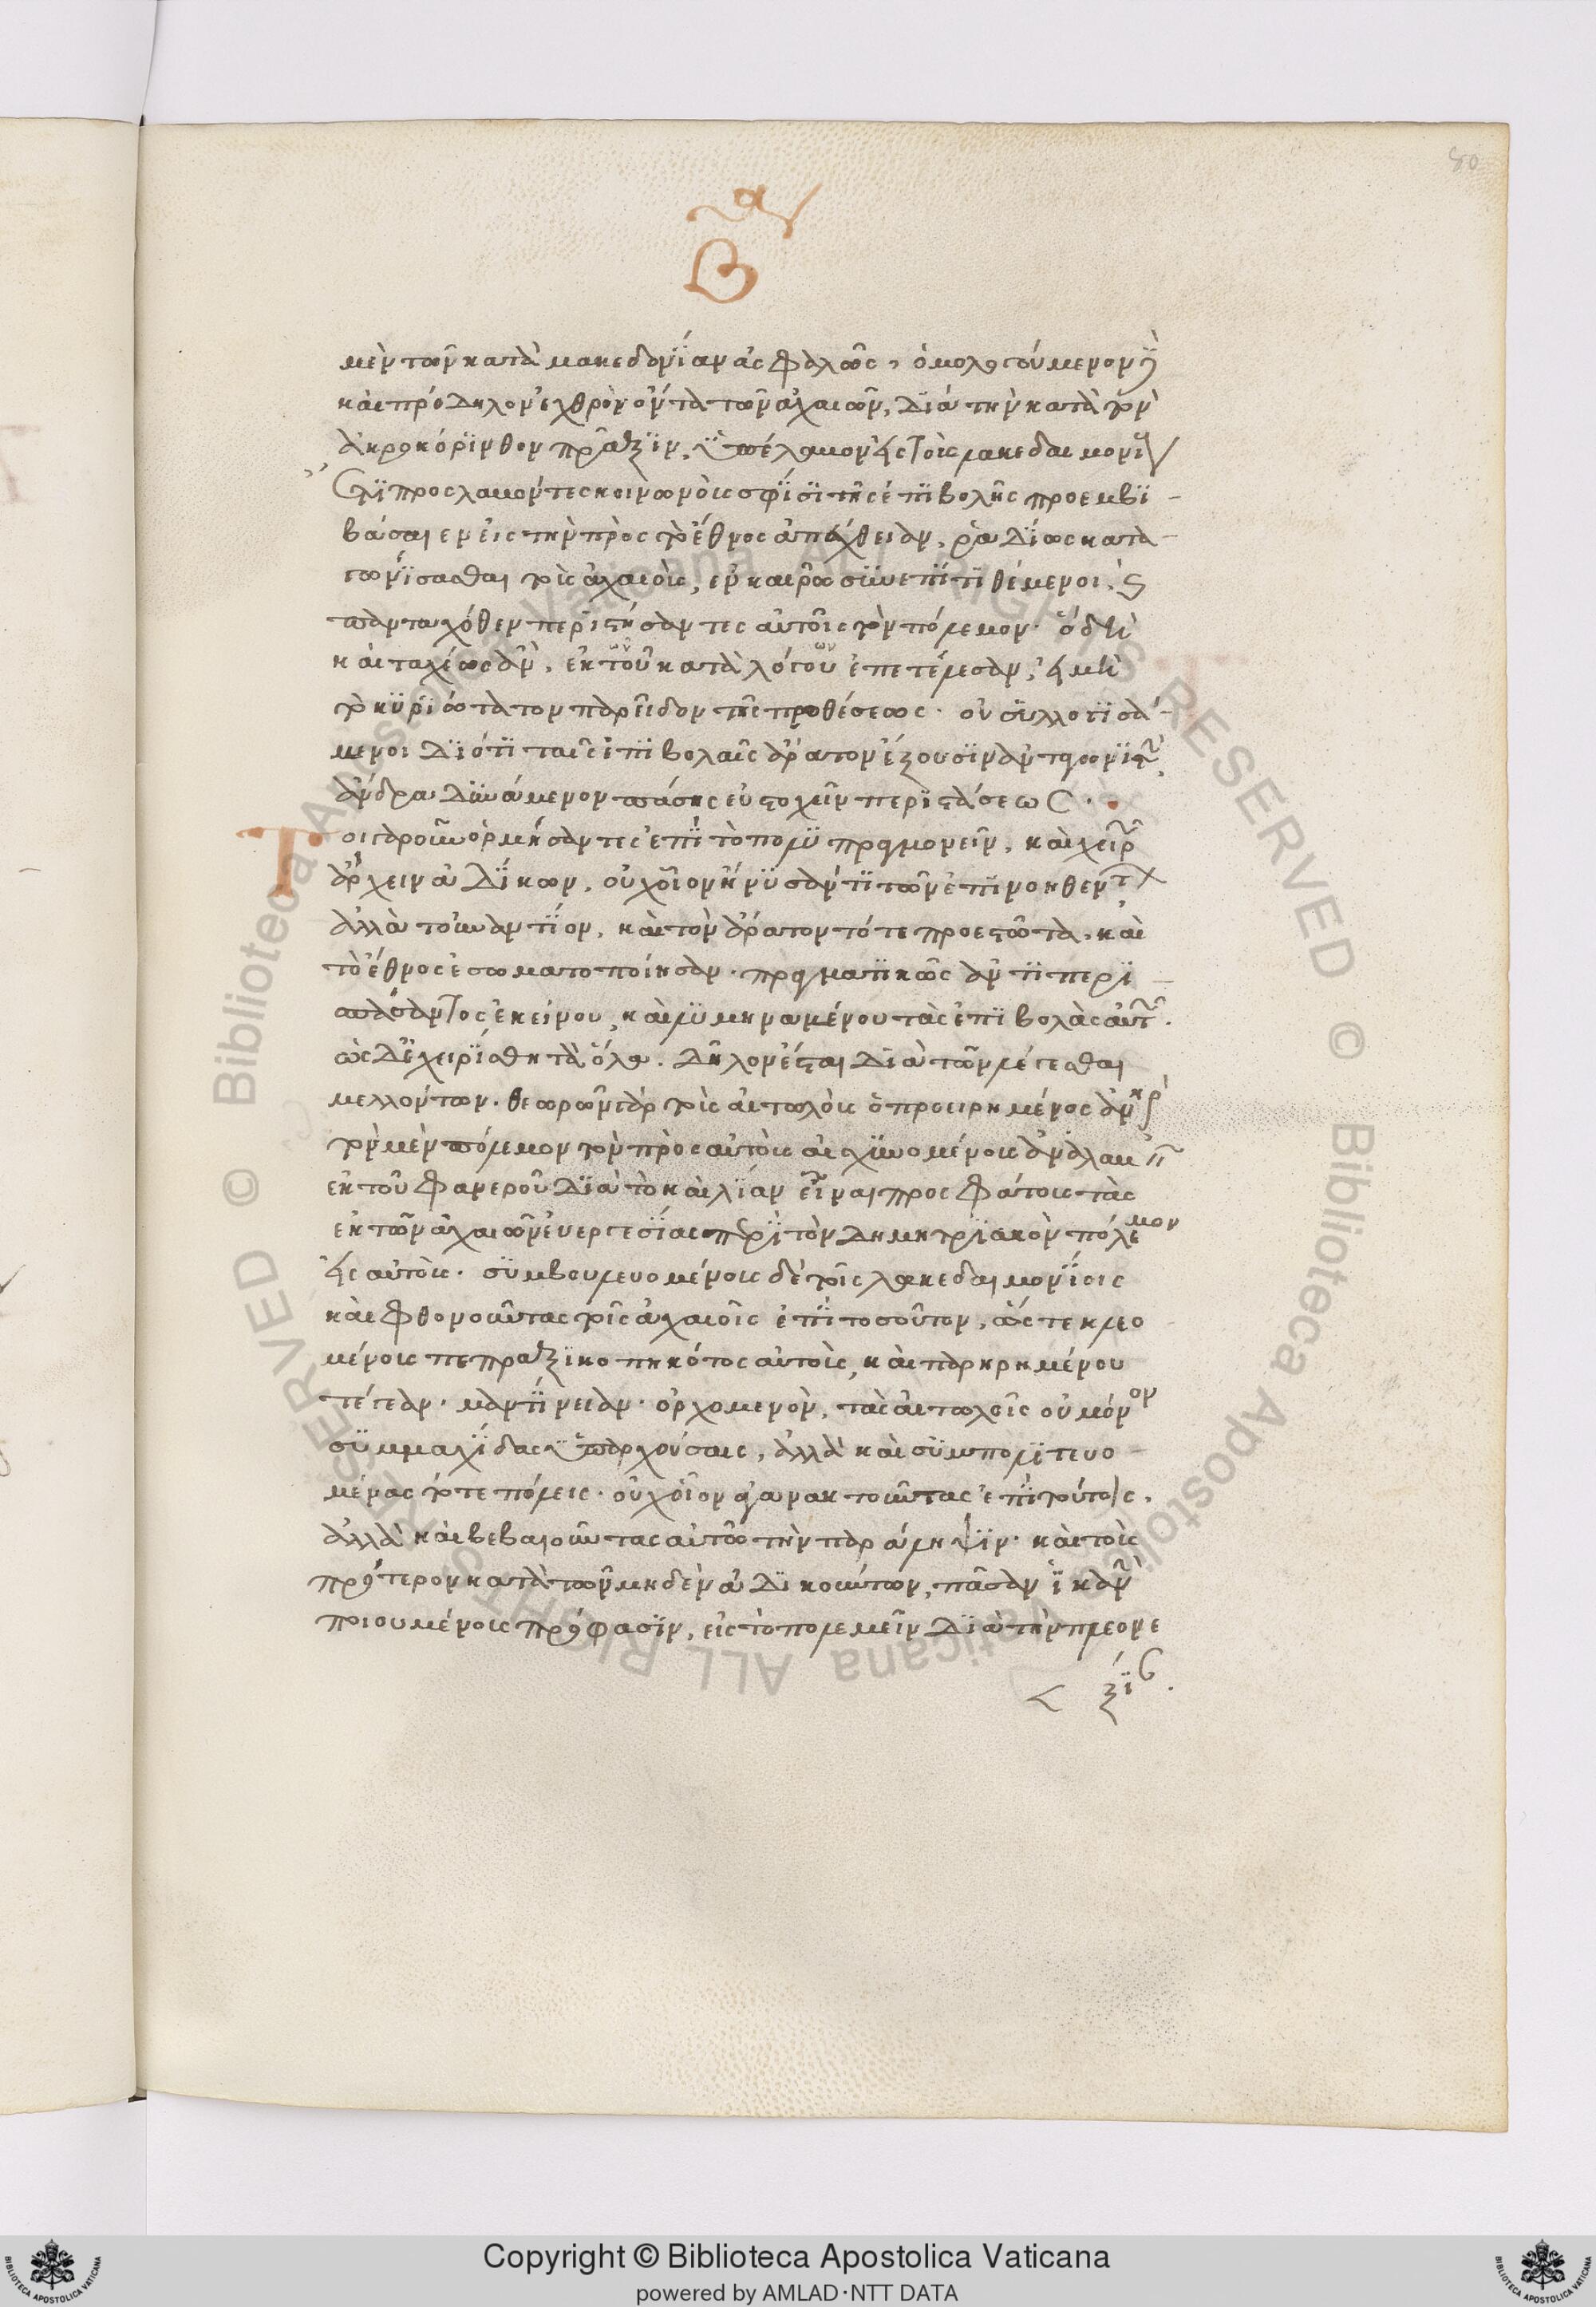 80
α
Β
μὲν τῶν κατὰ μακεδονίαν ἀσφαλῶς, ὁμολογούμενον δὲ
καὶ πρόδηλον ἐχθρὸν ὄντα τῶν ἀχαιῶν, διὰ τὴν κατὰ τὸν
ἀκροκόρινθον πρᾶξιν, ὑπέλαβον εἰ τοὺς λακεδαιμονίους
ἔτι προσλαβόντες κοινωνοὺς σφίσι τῆς ἐπιβολῆς προεμβι-
βάσαιεν εἰς τὴν πρὸς τὸ ἔθνος ἀπέχθειαν, ῥαδίως κατα-
γωνίσασθαι τοὺς ἀχαιοὺς, ἐν καιρῷ συνεπιτιθέμενοι, καὶ
πανταχόθεν περιστήσαντες αὐτοῖς τὸν πόλεμον. ὃ δὴ
καὶ ταχέως ἂν, ἐκ τοῦ κατὰ λόγου ἐπετέλεσαν, εἰ μὴ
τὸ κυριώτατον παρεῖδον τῆς προθέσεως. οὐ συλλογισά-
μενοι διότι ταῖς ἐπιβολαῖς ἄρατον ἕξουσιν ἀνταγωνιστὴν
ἄνδρα δυνάμενον πάσης εὐστοχεῖν περιστάσεως.
Τοιγαροῦν ὁρμήσαντες ἐπὶ τὸ πολυπραγμονεῖν, καὶ χειρῶν
ἄρχειν ἀδίκων, οὐχ οἷον ἤνυσάν τι τῶν ἐπινοηθέντων
ἀλλὰ τοὐναντίον, καὶ τὸν ἄρατον τότε προεστῶτα, καὶ
τὸ ἔθνος ἐσωματοποίησαν. πραγματικῶς ἀντιπερι-
σπάσαντος ἐκείνου, καὶ λυμηναμένου τὰς ἐπιβολὰς αὐτῶν.
ὡς δ' ἐχειρίσθη τὰ ὅλα. δῆλον ἔσται διὰ τῶν λέγεσθαι
μελλόντων. θεωρῶν γὰρ τοὺς αἰτωλοὺς ὁ προειρημένος ἀνὴρ
τὸν μὲν πόλεμον τὸν πρὸς αὐτοὺς αἰσχυνομένους ἀναλαβεῖν
ἐκ τοῦ φανεροῦ διὰ τὸ καὶ λίαν εἶναι προσφάτους τὰς
ἐκ τῶν ἀχαιῶν εὐεργεσίας περὶ τὸν δημητριακὸν πόλεμον
εἰς αὐτοὺς. συμβουλευομένους δὲ τοῖς λακεδαιμονίοις
καὶ φθονοῦντας τοῖς ἀχαιοῖς ἐπὶ τοσοῦτον, ὥστε κλεο
μένους πεπραξικοπηκότος αὐτοὺς, καὶ παρῃρημένου
τέγεαν. μαντίνειαν. ὀρχομενὸν, τὰς αἰτωλοῖς οὐ μόνον
συμμαχίδας ὑπαρχούσας, ἀλλὰ καὶ συμπολιτευο-
μένας τότε πόλεις. οὐχ οἷον ἀγανακτοῦντας ἐπὶ τούτοις,
ἀλλὰ καὶ βεβαιοῦντας αὐτῷ τὴν παράληψιν. καὶ τοὺς
πρότερον κατὰ τῶν μηδὲν ἀδικούντων, πᾶσαν ἱκανὴν
ποιουμένους πρόφασιν, εἰς τὸ πολεμεῖν διὰ τὴν πλεονε
ξίαν.
Copyright © Biblioteca Apostolica Vaticana
powered by AMLAD·NTT DATA